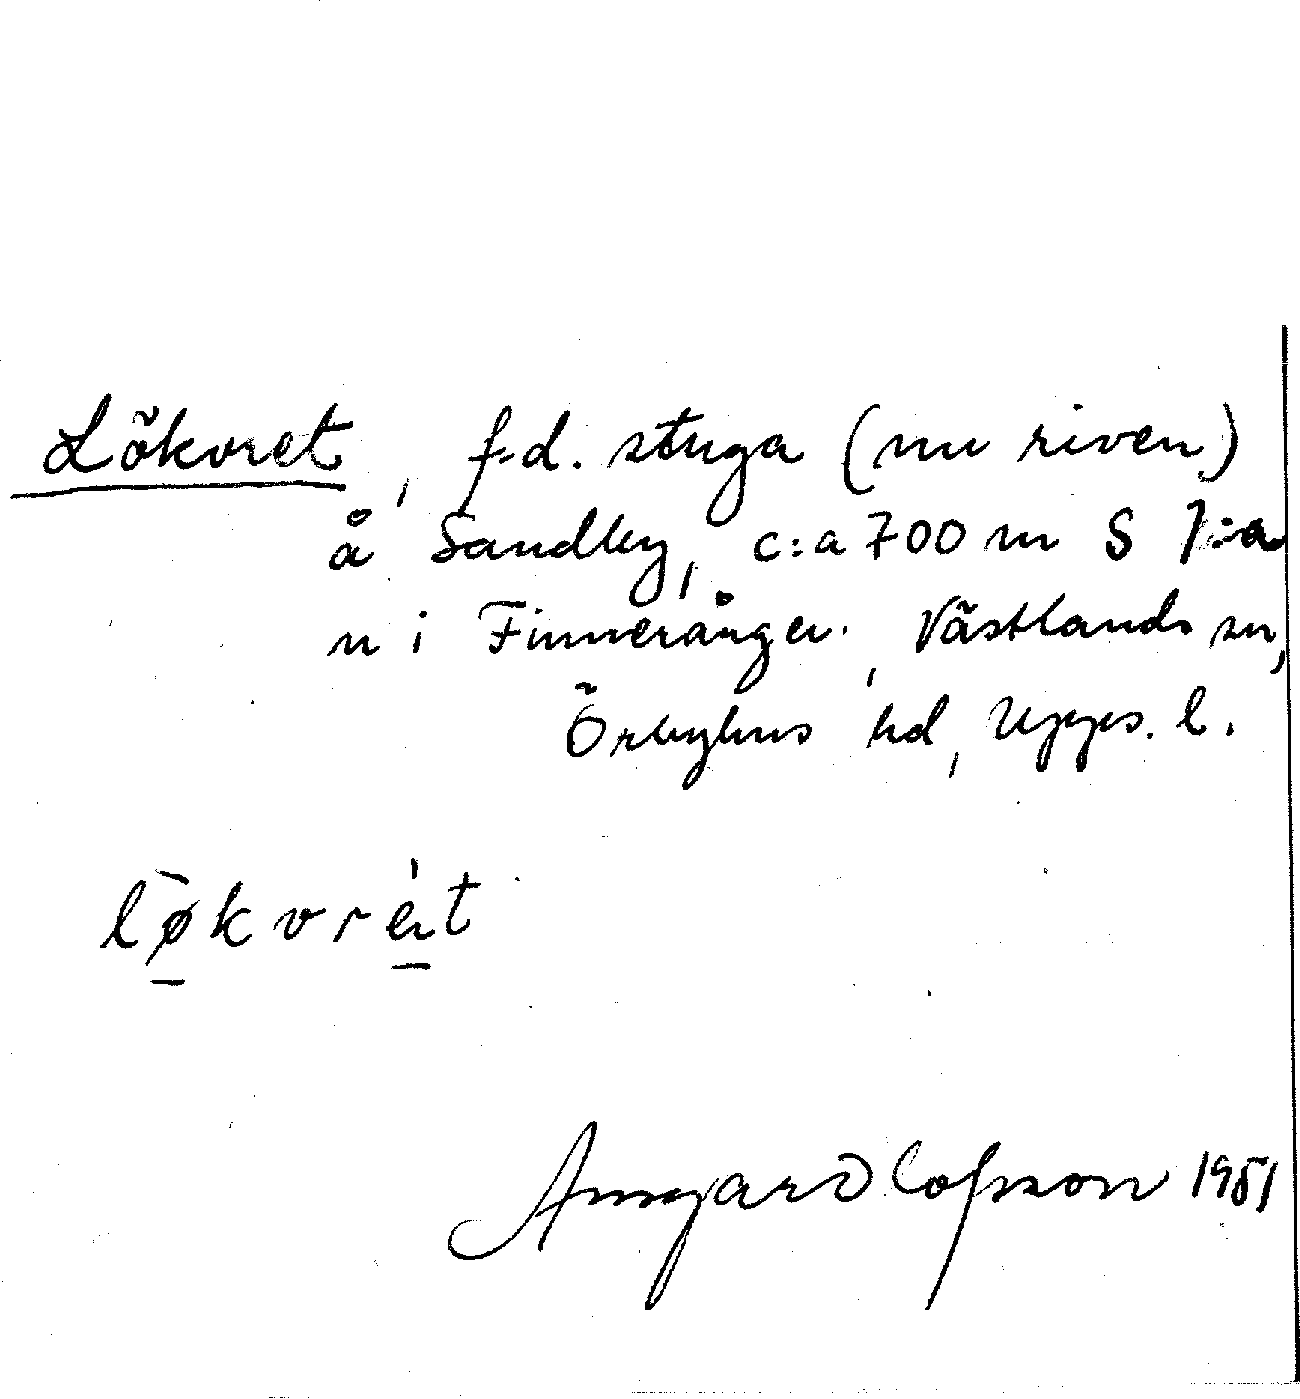 Lökvret, f.d. stuga (nu riven)
å Sandby, c:a 700 m S 1:a
n i Finnerånger. Västlands sn,
Örbyhus hd, Upps. l.
lø̀kvrèt
Olofsson 1951